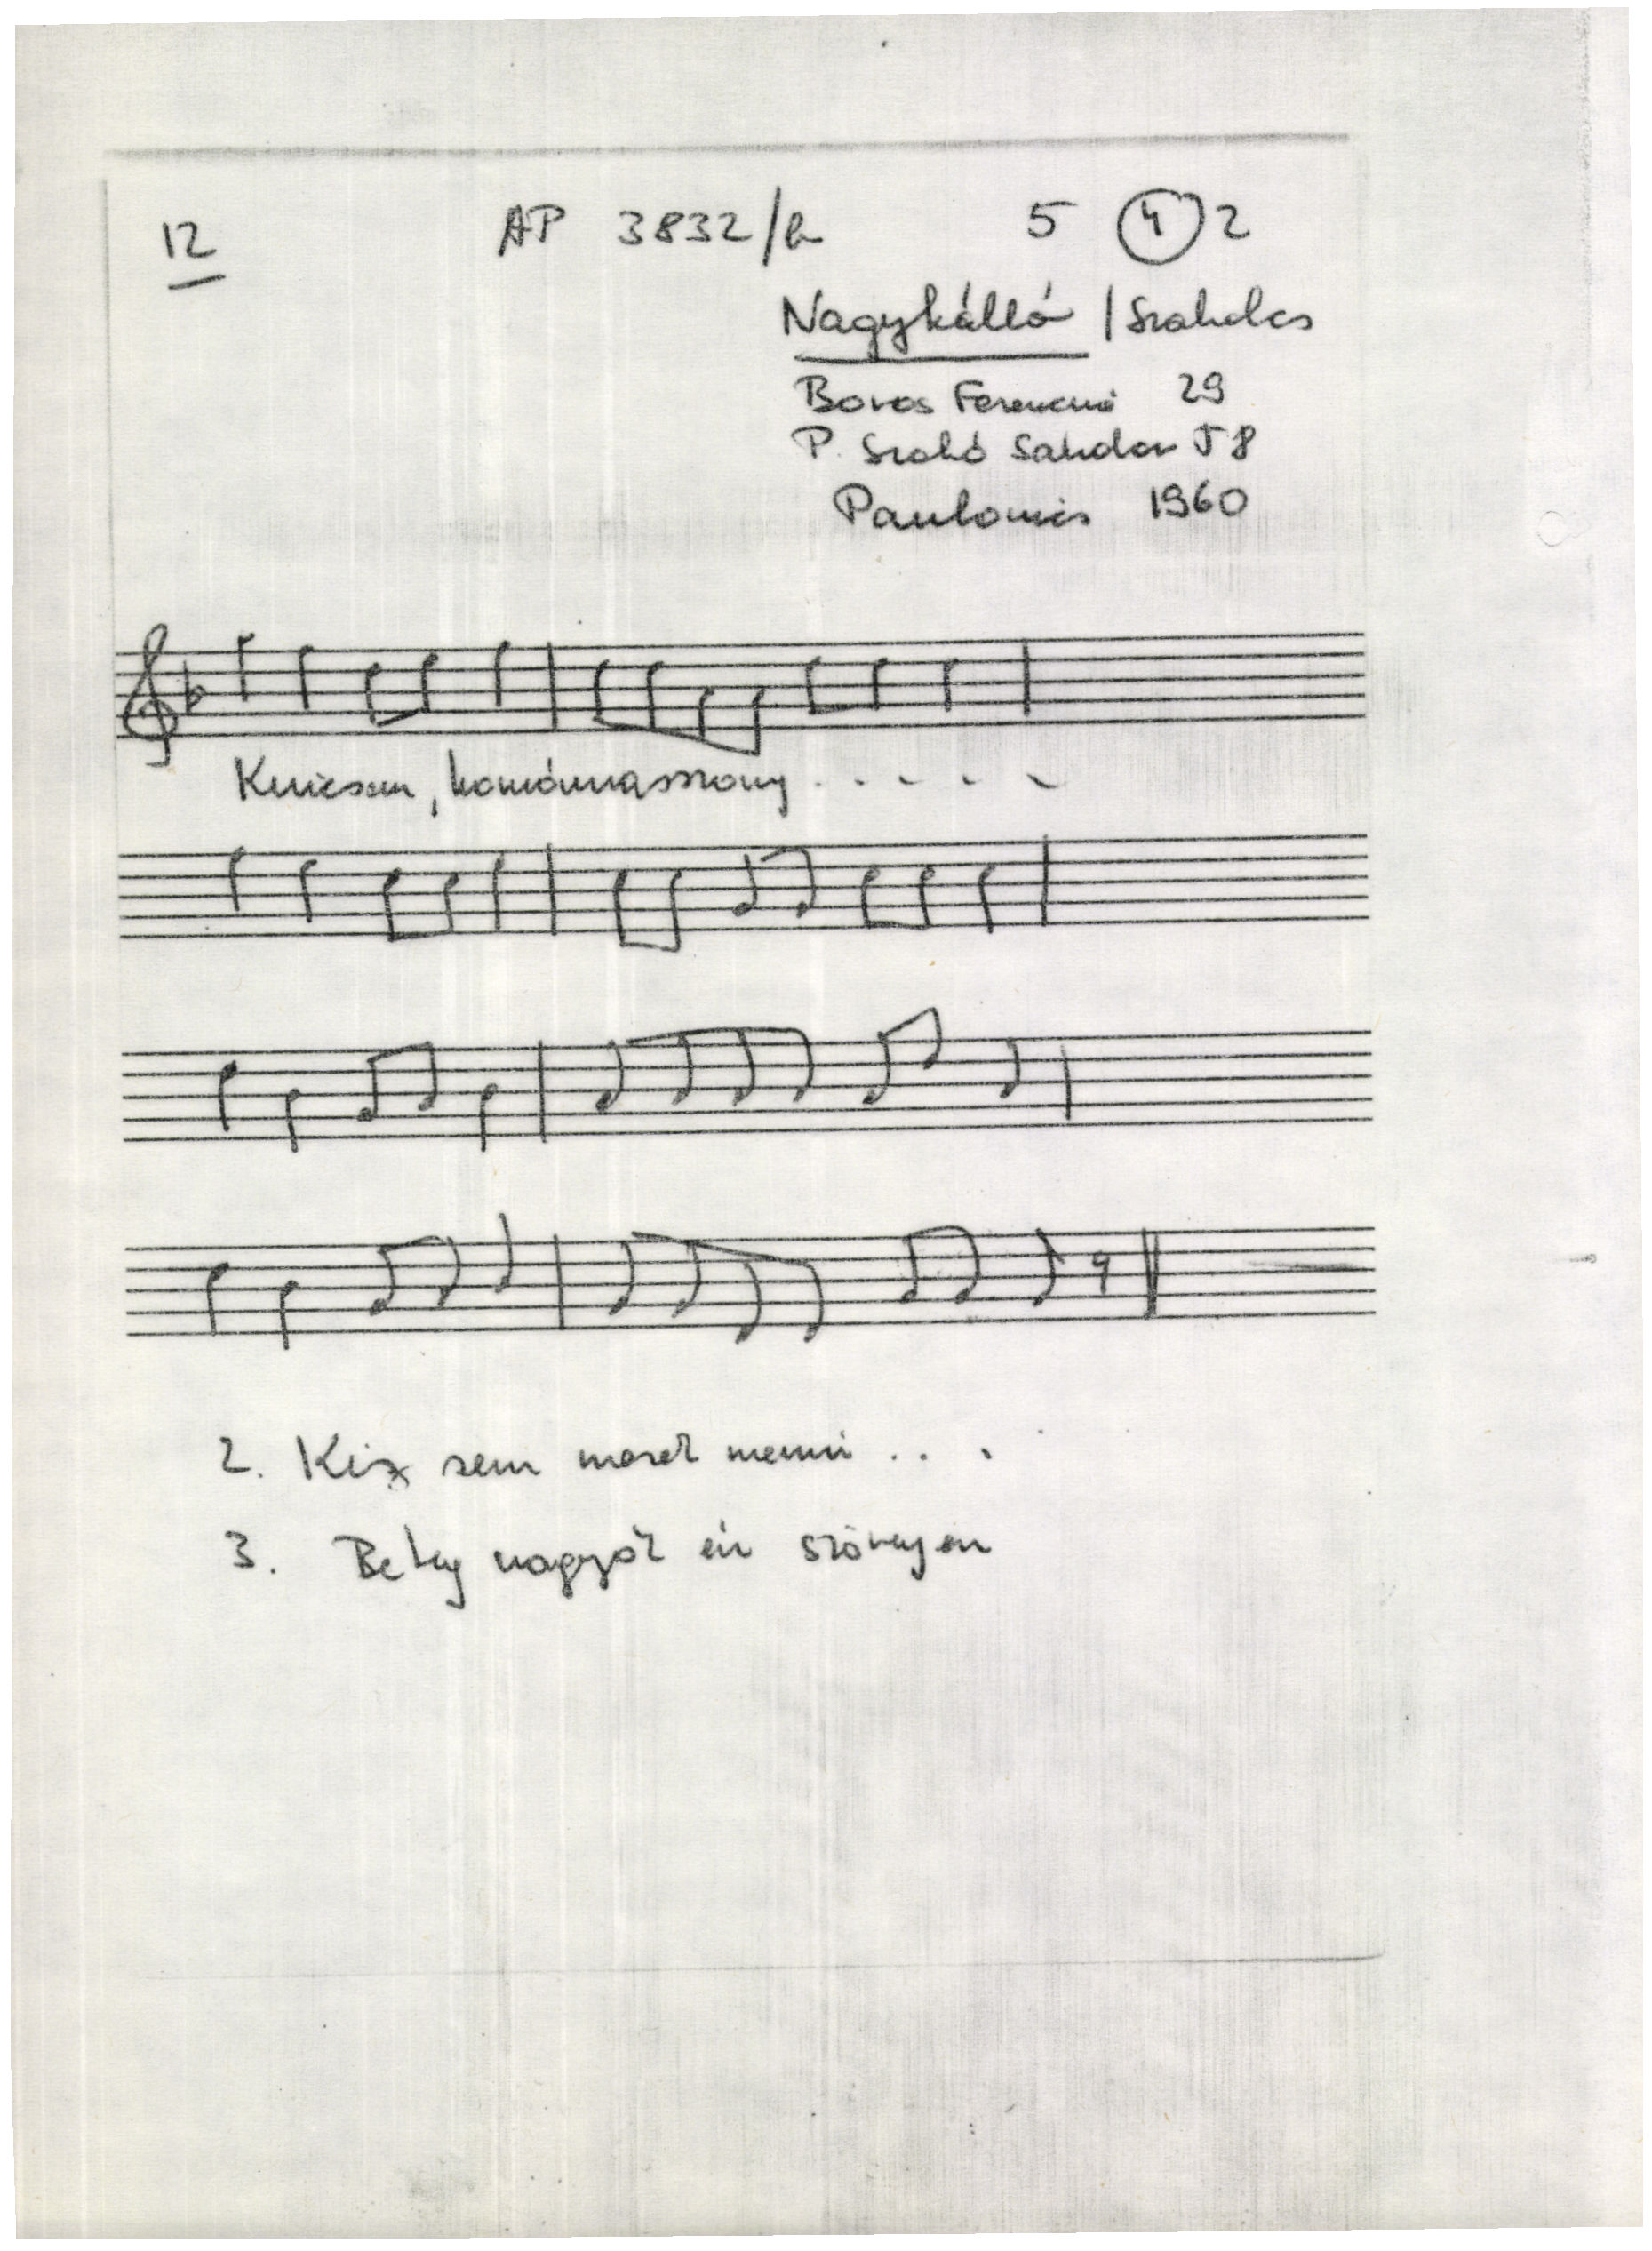 12 AP 3832/b 5 4 2
Nagykálló / Szabolcs
Boros Ferencné 29
P. Szabó Sándor 58
Paulovics 1960
komámasszony . . . . .
2. Kis sem mert menni . . .
3. nagyot én